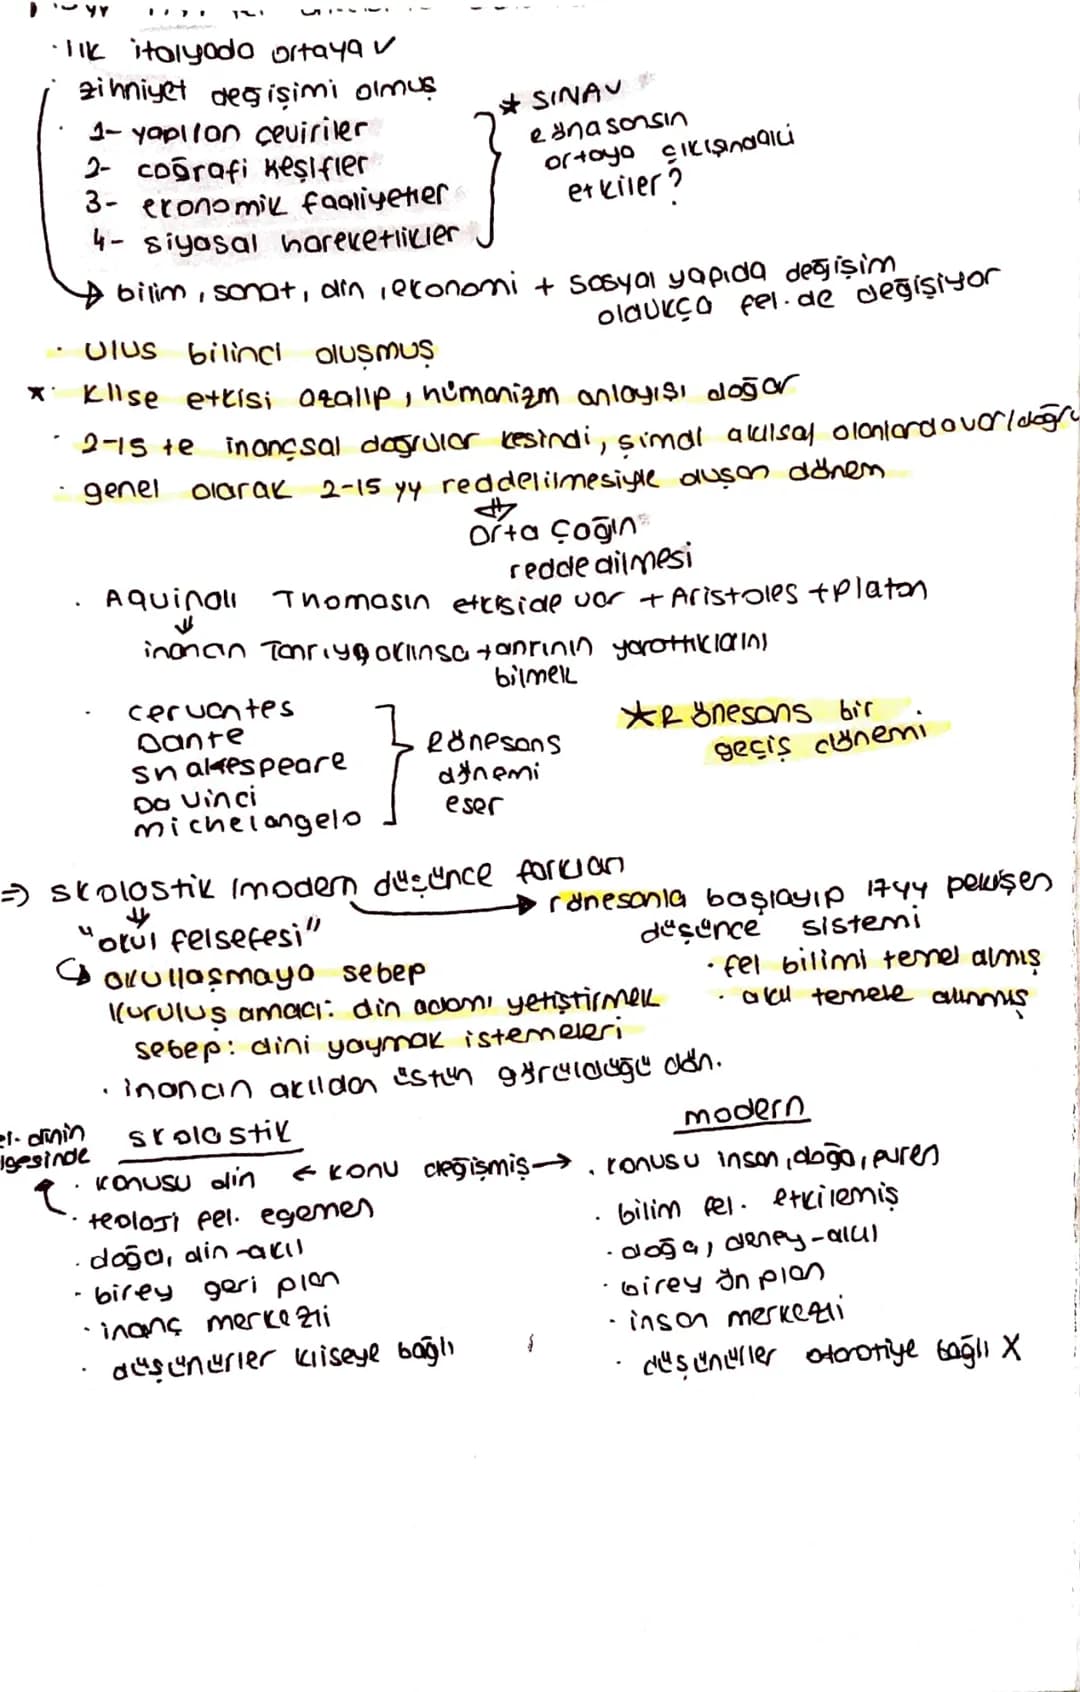 · ilk italyada ortaya ✓
· zihniyet değişimi olmuş
· 1- yapılan çeviriler
2- coğrafi keşifler
3- ekonomik faaliyetler
4- siyasal hareketlikler
* SINAV
Rönasonsın
ortaya çıkışındaki
etkiler?
→ bilim, sanat, din, ekonomi + sosyal yapıda değişim
oldukça fel. de değişiyor
· ulus bilinci oluşmuş
*· Klise etkisi azalıp, hümanizm anlayışı doğar
· 2-15 te inançsal doğrular kesindi, şimdi akılsal olanlarda var/doğru
· genel olarak 2-15 yy reddelilmesiyle oluşan dönem
⇓
Orta Çoğın
reddedilmesi
· Aquinalı Thomasın etkiside var + Aristoles + Platon
⇓
inanan Tanrıya akılınsa tanrının yarattıklarını
bilmek
· cervantes
Dante
shakespeare
Da vinci
michelangelo
Rönesans
dönemi
eser
★ Rönesans bir
geçiş dönemi
⇒ skolastik /modern düşünce farkları
⇓
"okul felsefesi"
↳ okullaşmaya sebep
Kuruluş amacı: din adamı yetiştirmek
sebep: dini yaymak istemeleri
· inancın akıldan üstün görüldüğü dön.
→ rönesanla başlayıp 17yy pekişen
düşünce sistemi
· fel bilimi temel almış
· akıl temele alınmış
skolastik
· konusu din ← konu değişmiş →
· teoloji fel. egemen
· doğa, din-akıl
· birey geri plan
· inanç merkezli
· düşünürler kliseye bağlı
modern
· konusu insan, doğa, evren
· bilim fel. etkilemiş
· doğa, deney-akıl
· birey ön plan
· insan merkezli
· düşünürler otorotiye bağlı X